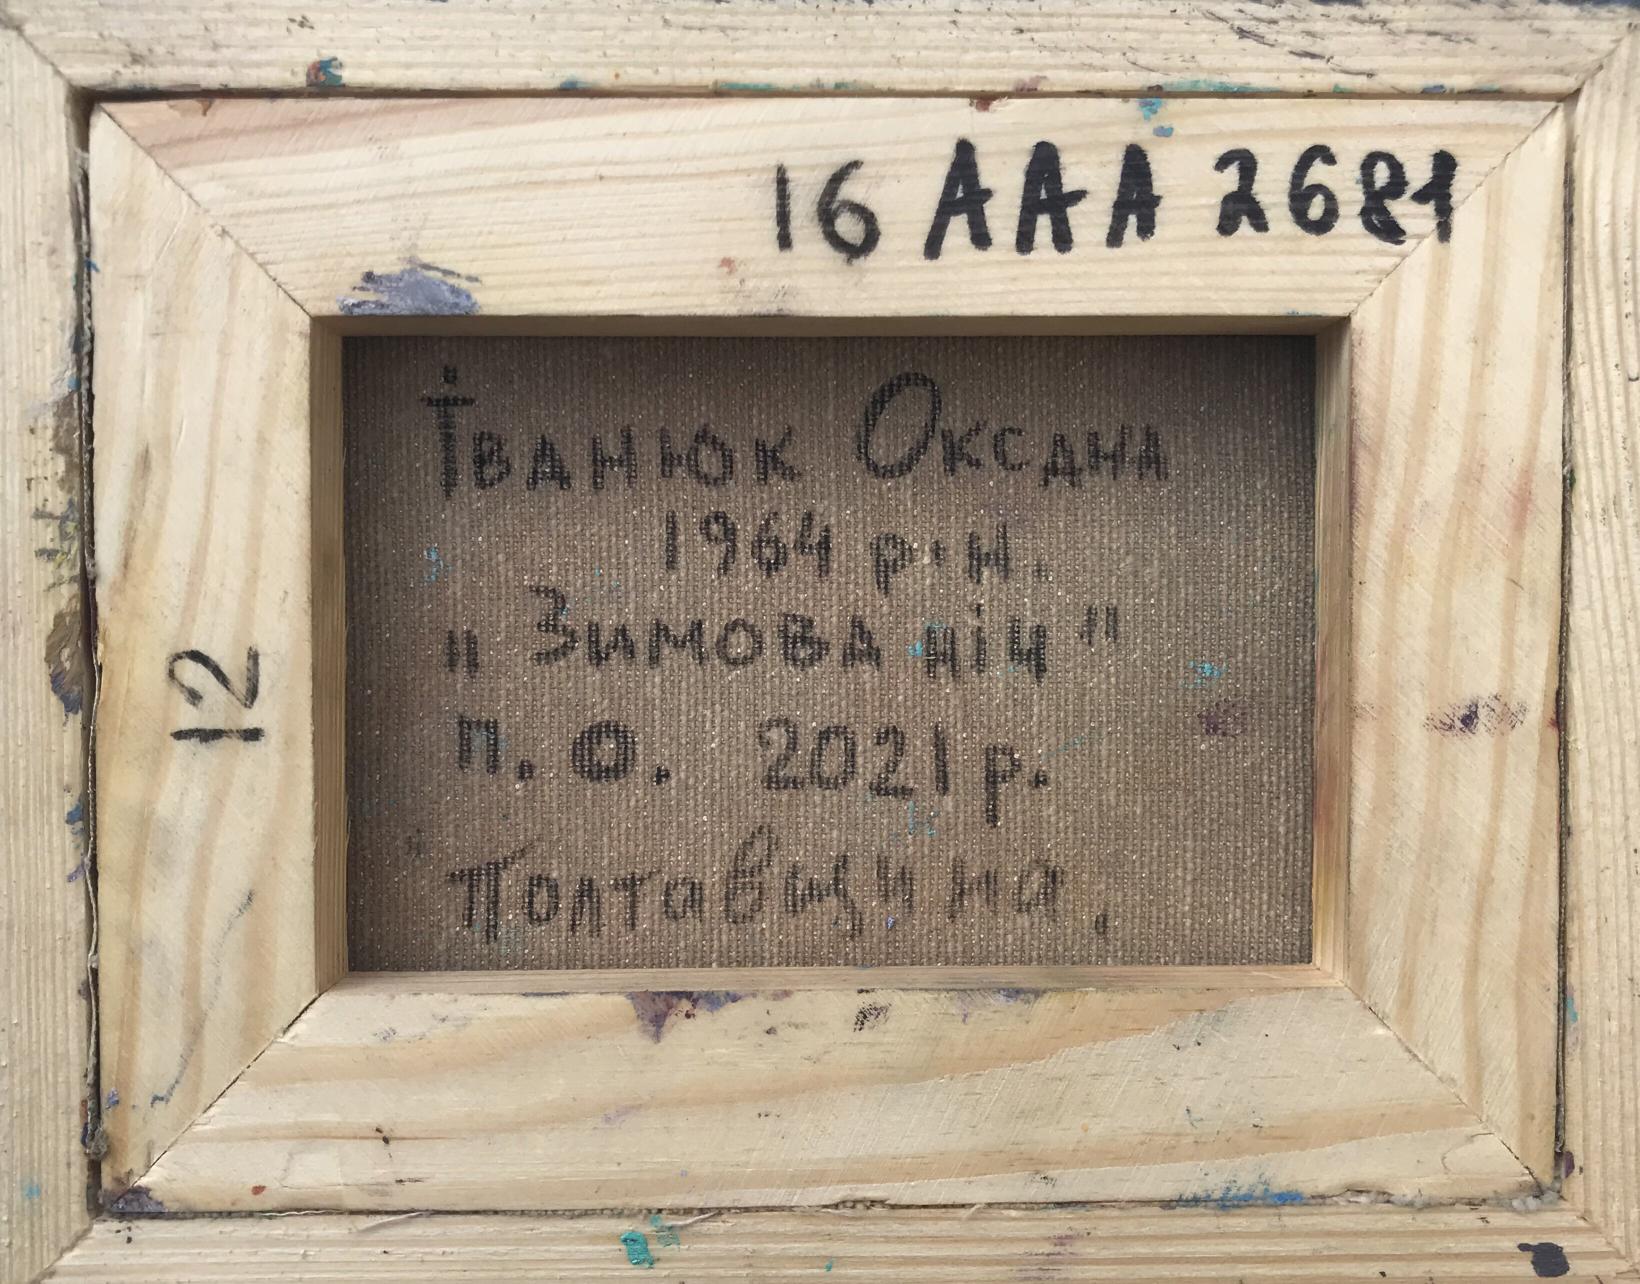 16 AAA 2681
Іванюк Оксана
1964 р.н.
„Зимова ніч"
п.о. 2021р.
Полтавщина.
12